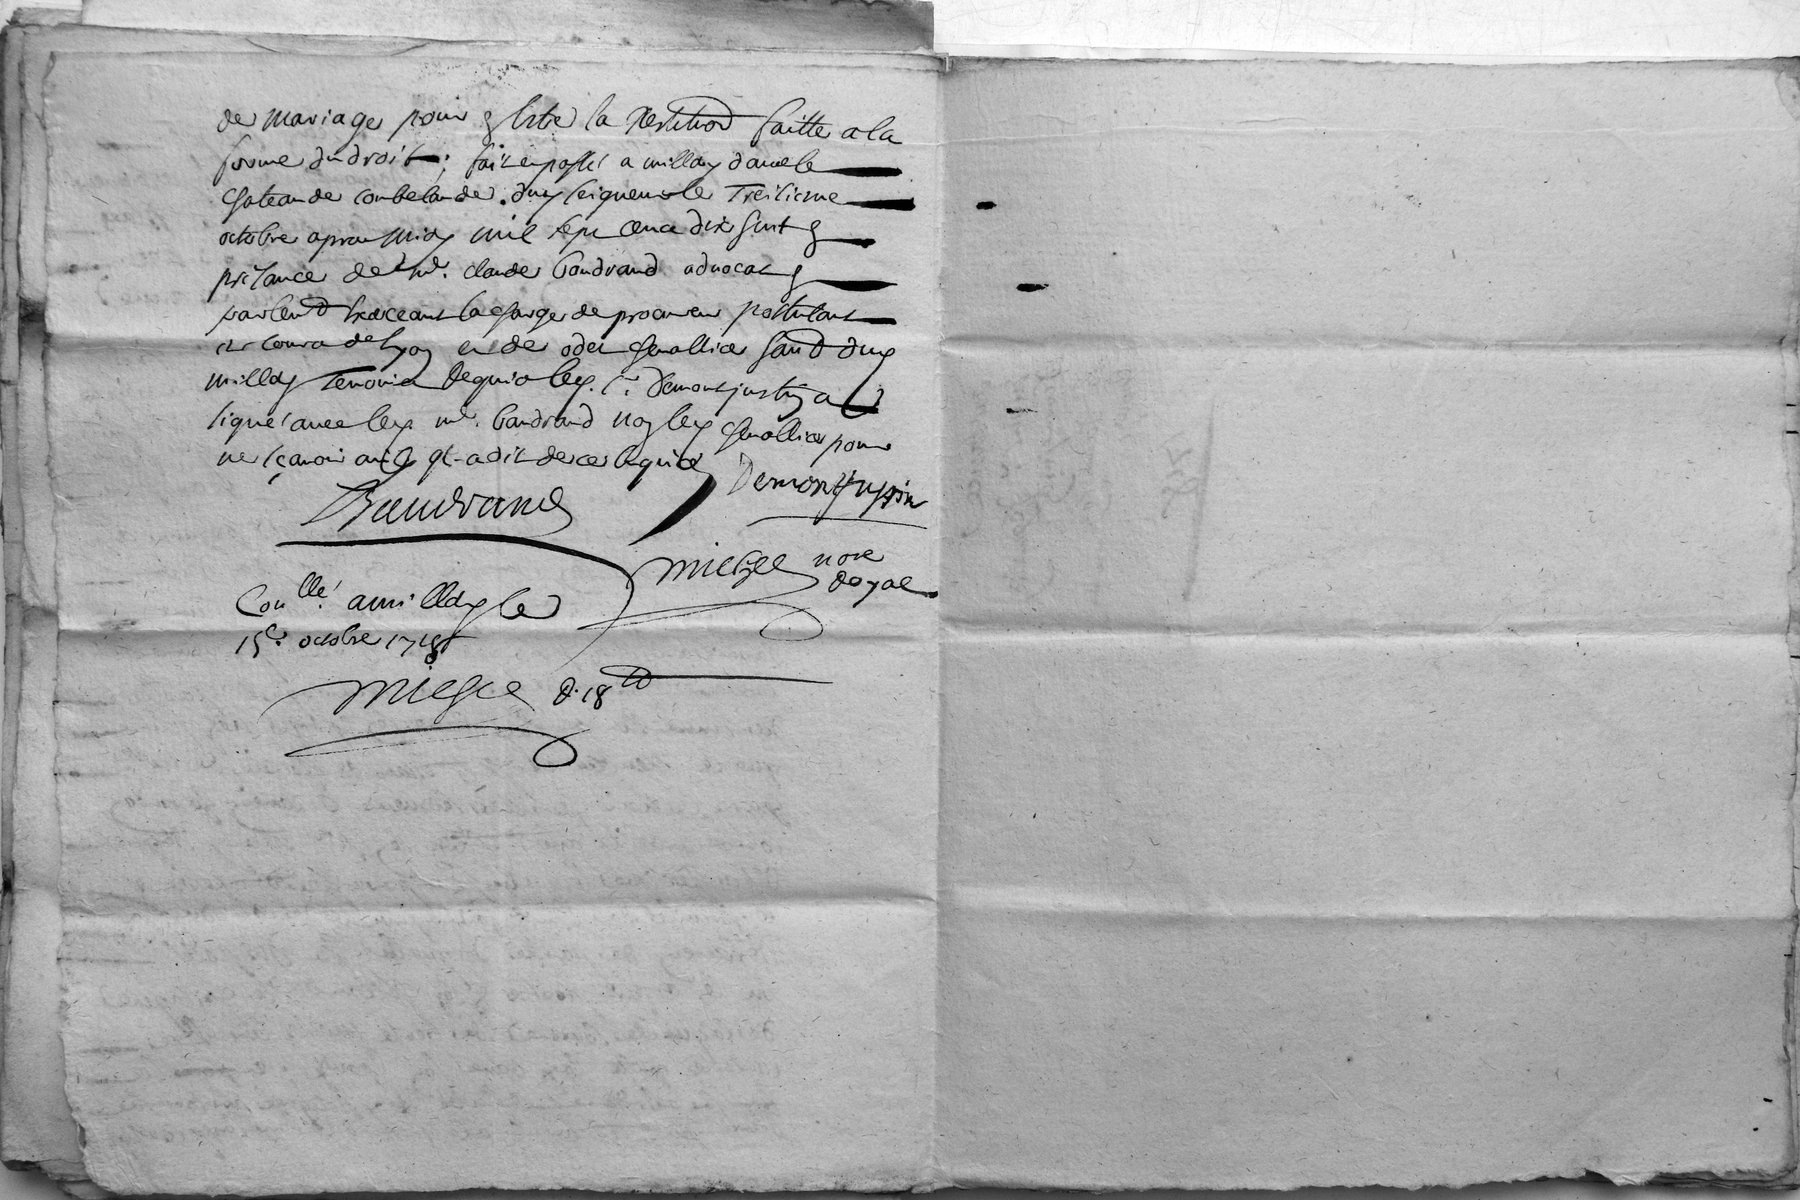 de mariage pour estre la faitte a la
forme du droit; fait et passé a millay dans le
chateau de combelande. dud seigneur le Treisieme
octobre apres midy mil sept cent dix huit en
presance de me. claude baudrand advocat en
parlemt exerceant la charge de procureur postulant
es cours de lyon et de odet chevallier dud
millay Temoins Requis led. sr. demontjustin a
signé avec led me. baudrand non led chevallier pour
ne sçavoir qt a dit de ce enquis
Baudrand
Demontjustin
miege nore
Royal
Conllé. a millay le
15e. octobre 1718
miege R. 18